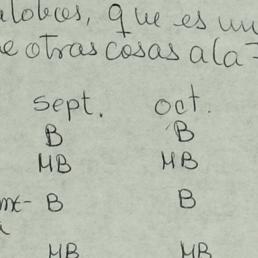 que es un
e otras cosas a la
sept. oct.
B B
MB MB
B B
MB MB